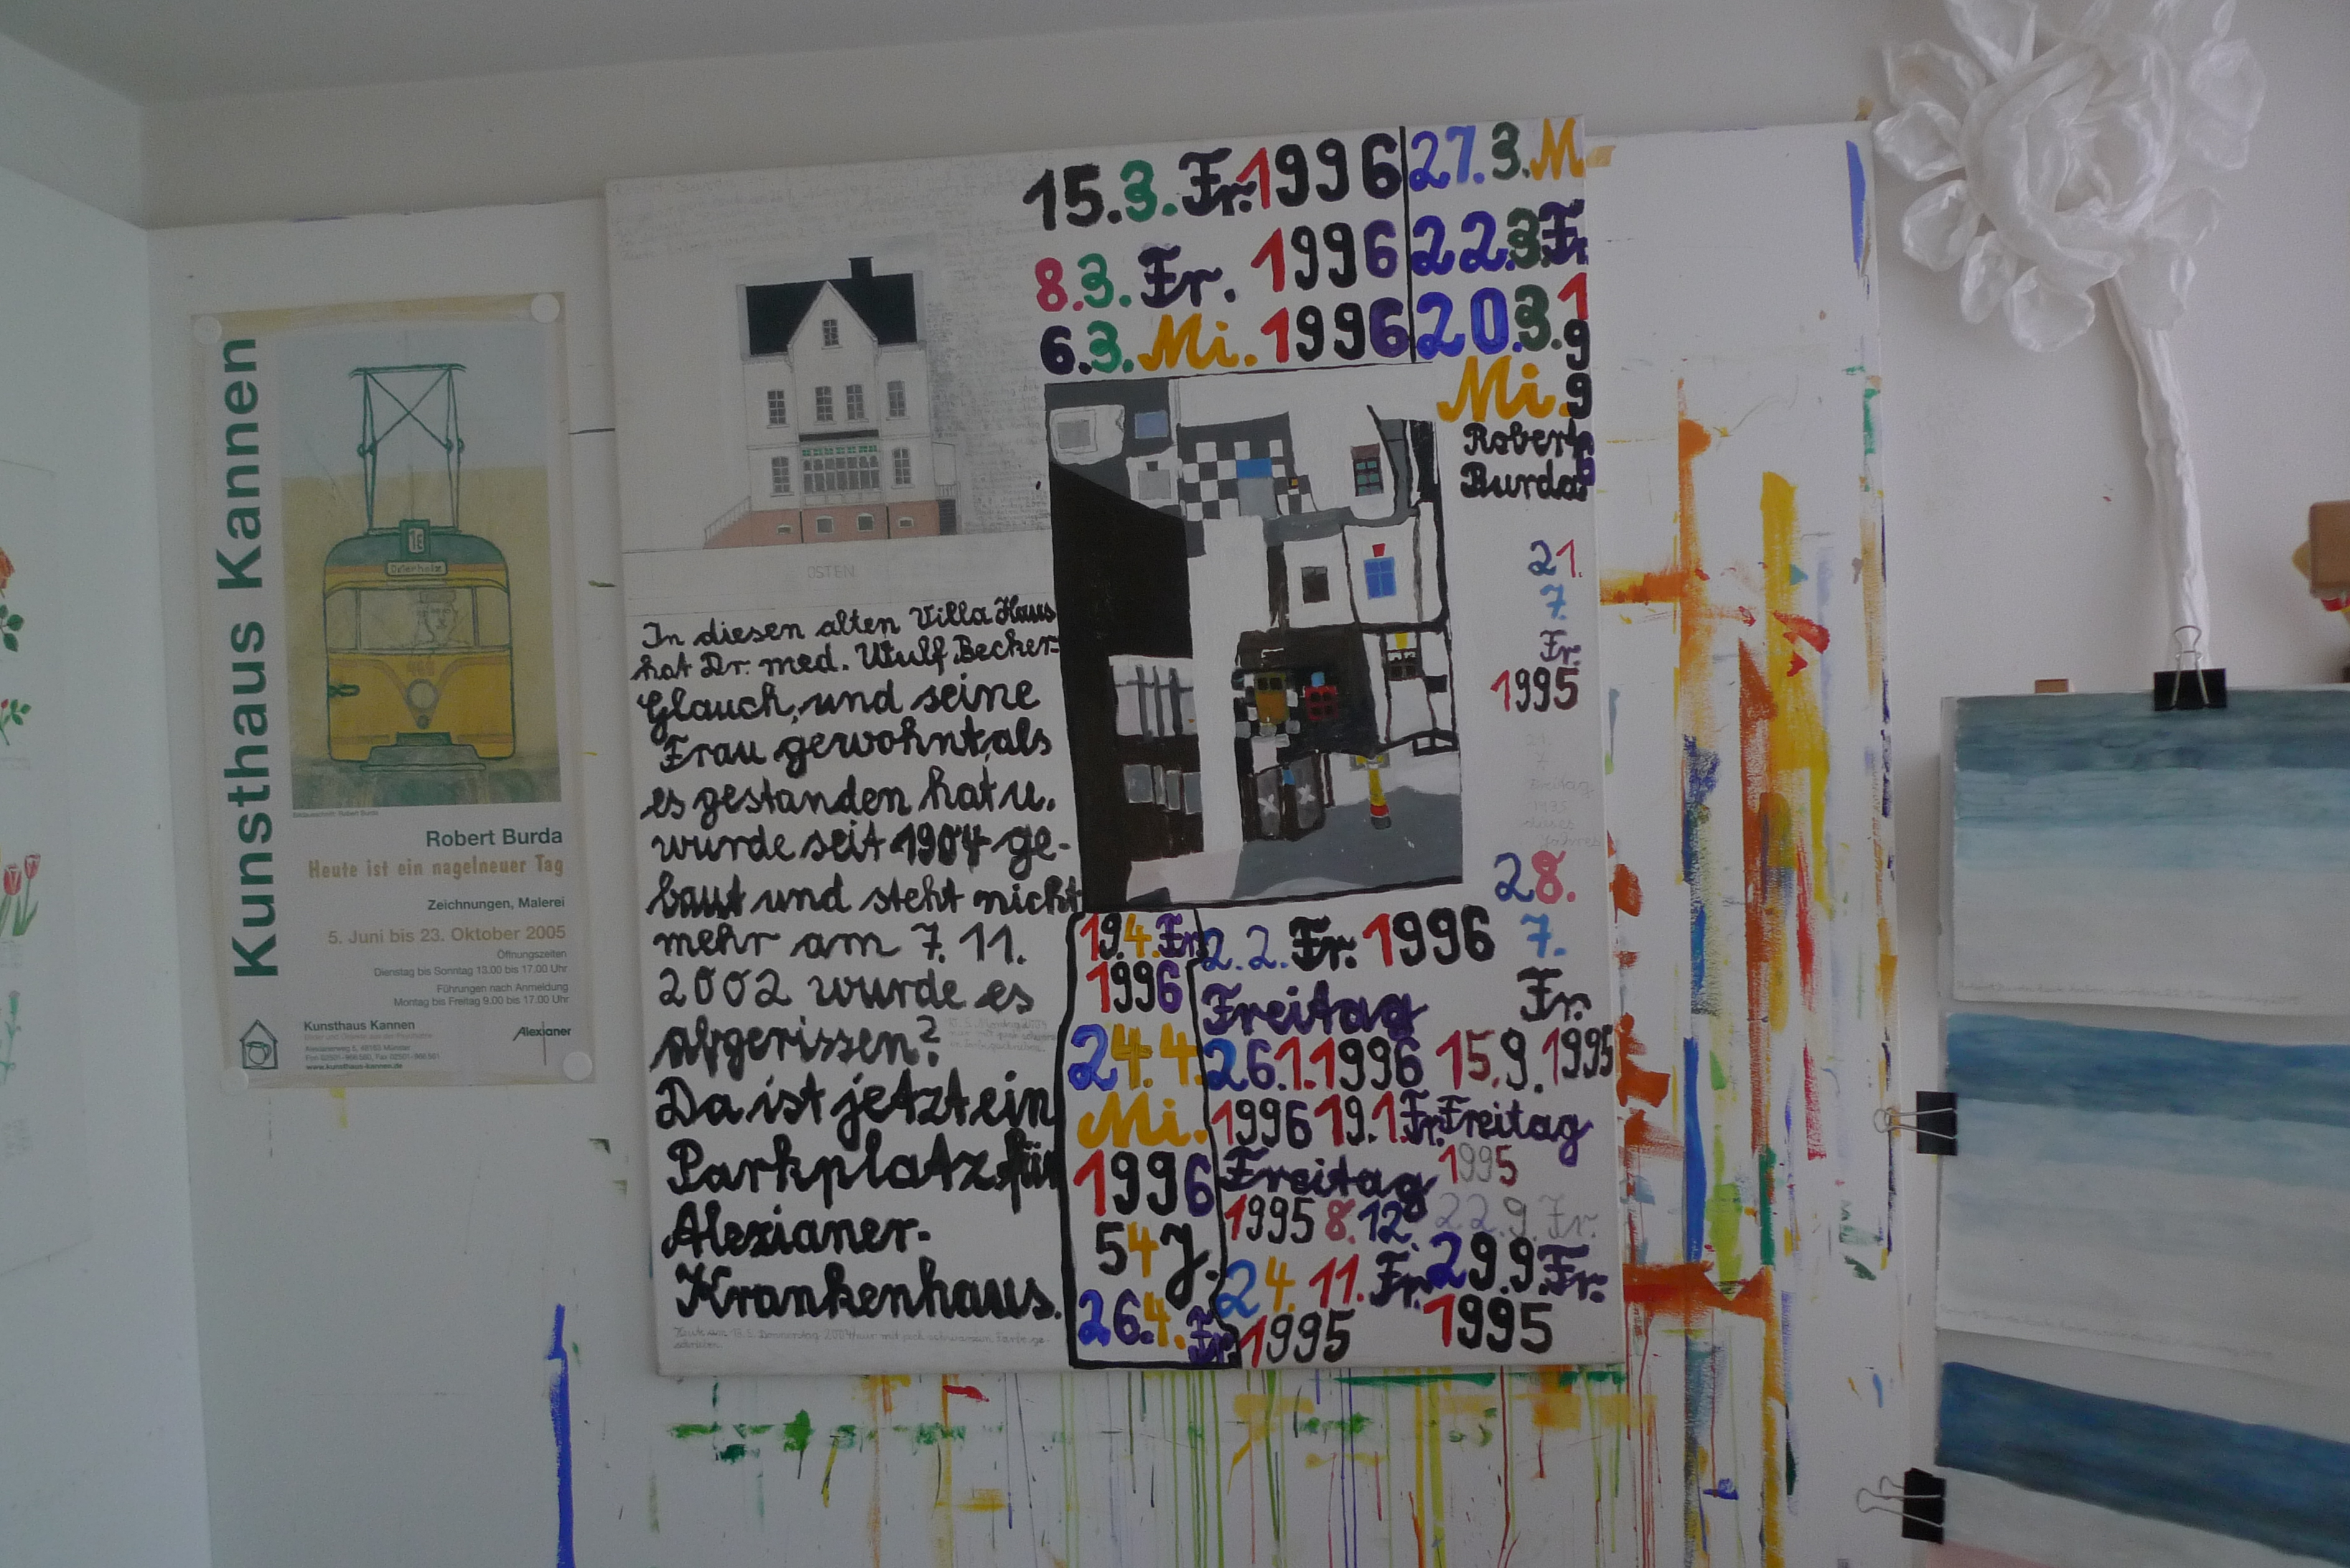 Kunsthaus Kannen
16
Osterholz
Robert Burda
Heute ist ein nagelneuer Tag
Zeichnungen, Malerei
5. Juni bis 23. Oktober 2005
Öffnungszeiten
Dienstag bis Sonntag 13.00 bis 17.00 Uhr
Führungen nach Anmeldung
Montag bis Freitag 9.00 bis 17.00 Uhr
Kunsthaus Kannen
Alexianer
www.kunsthaus-kannen.de
OSTEN
In diesen alten Villa Haus
hat Dr. med. Wulf Becker-
Glauch, und seine
Frau gewohnt, als
es gestanden hat u.
wurde seit 1904 ge-
baut und steht nicht
mehr am 7. 11.
2002 wurde es
abgerissen?
Da ist jetzt ein
Parkplatz für
Alexianer-
Krankenhaus.
15.3. Fr. 1996
8.3. Fr. 1996
6.3. Mi. 1996
27.3. M
22.3. Fr.
20.3. 1996
Mi.
Robert
Burda
21.
7.
Fr.
1995
28.
7.
Fr.
15.9.1995
Freitag
1995
22.9. Fr.
29.9. Fr.
1995
19.4. Fr.
1996
24.4.
Mi.
1996
54 J.
26.4. Fr.
2.2. Fr. 1996
Freitag
26.1.1996
1996 19.1. Fr.
Freitag
1995 8.12.
24. 11. Fr.
1995